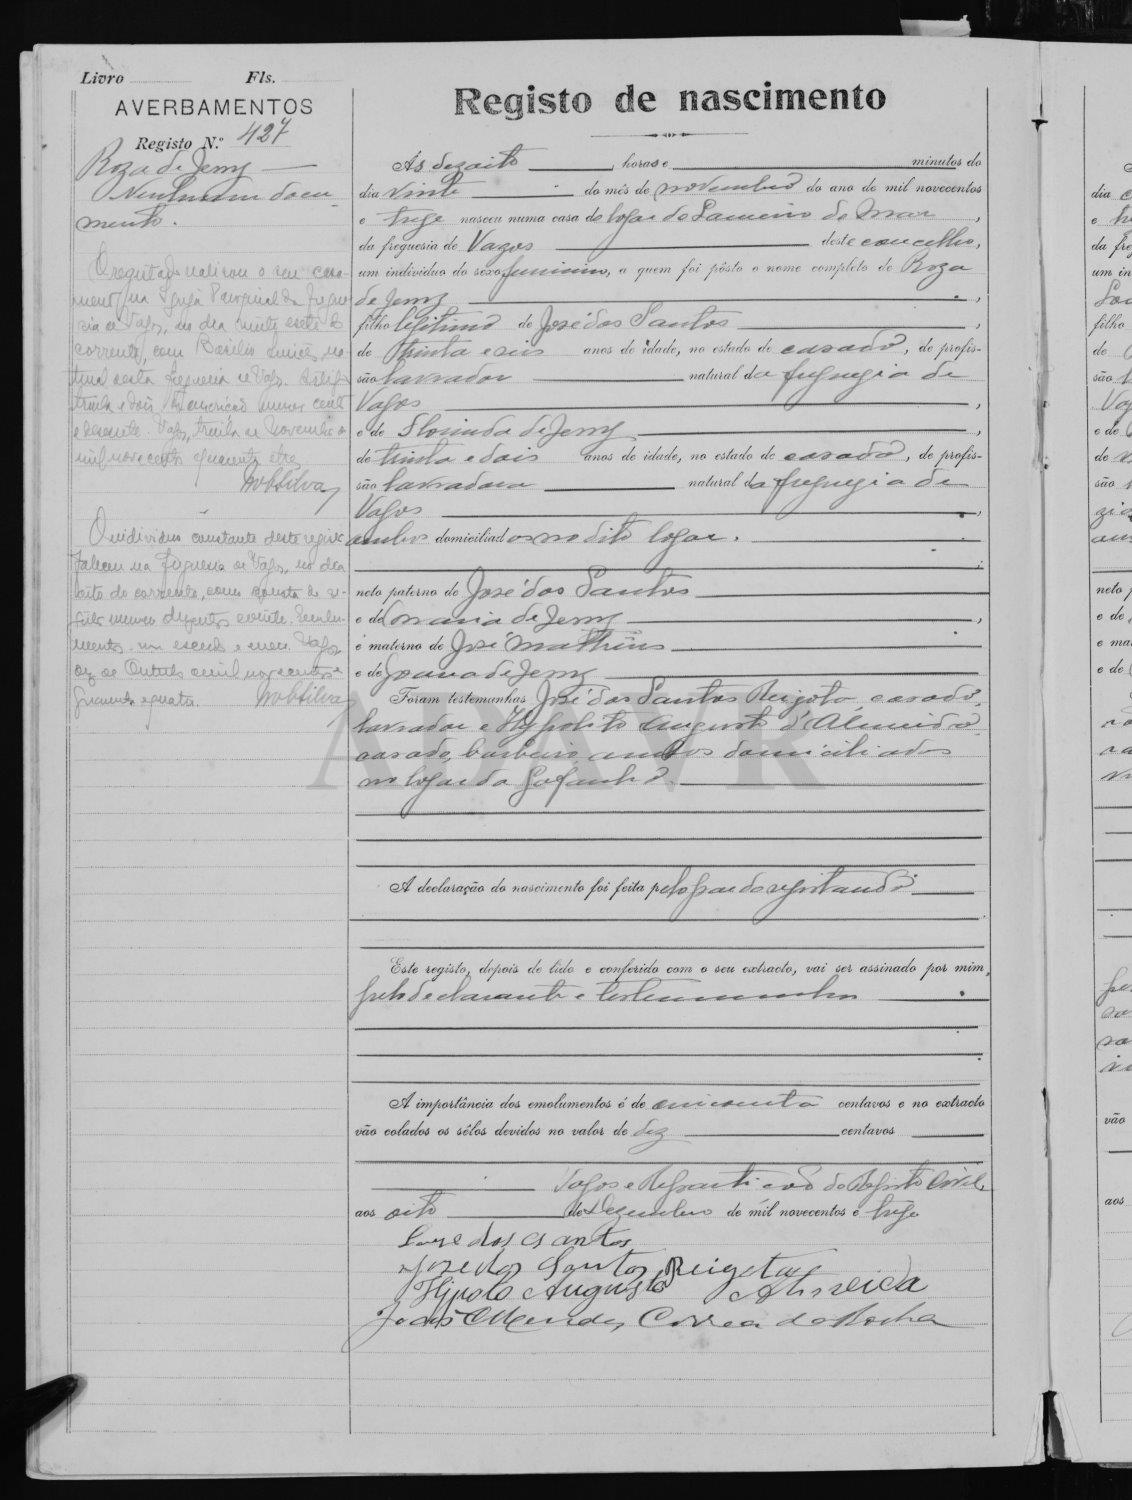 Livro Fls.
AVERBAMENTOS
Registo N.º 427
Roza de Jesus
Nenhum docu-
mento.
O registado realizou o seu casa-
mento na Igreja Paroquial da fregue-
sia de Vagos, no dia vinte e sete do
corrente, com Basilio na-
tural desta freguesia de Vagos.
trinta e dois numero cento
e dezasete. Vagos, trinta de Novembro de
mil novecentos quarenta e tres
MobSilva
O individuo constante deste registo
faleceu na freguesia de Vagos, no dia
oito do corrente, como consta do re-
gisto numero duzentos e vinte. Emolu-
mentos um escudo e meio. Vagos,
dez de Outubro de mil novecentos e
quarenta e quatro. MobSilva
Registo de nascimento
Ás dezoito horas e minutos do
dia vinte do mês de novembro do ano de mil novecentos
e treze nasceu numa casa do logar do Lameiro do Mar,
da freguesia de Vagos deste concelho,
um indivíduo do sexo feminino, a quem foi pôsto o nome completo de Roza
de Jesus,
filho legitimo de José dos Santos,
de trinta e seis anos de idade, no estado de casado, de profis-
são lavrador natural da freguezia de
Vagos,
e de Florinda de Jesus,
de trinta e dois anos de idade, no estado de casada, de profis-
são lavradora natural da freguezia de
Vagos,
ambos domiciliados no dito logar.
neto paterno de José dos Santos
e de Maria de Jesus,
e materno de José Mathias
e de Joana de Jesus
Foram testemunhas José dos Santos Reigota, casado,
lavrador e Hypolito Augusto d'Almeida
casado, barbeiro, ambos domiciliados
no logar da Gafanha.
A declaração do nascimento foi feita pelo pae do registando
Este registo, depois de lido e conferido com o seu extracto, vai ser assinado por mim,
pelo declarante e testemunhas
A importância dos emolumentos é de cincoenta centavos e no extracto
vão colados os sêlos devidos no valor de dez centavos
Vagos e Repartição do Registo Civil,
aos oito de Dezembro de mil novecentos e treze
José dos Santos
José dos Santos Reigota
Hipolo Augusto Almeida
João Mendes Correa da Rocha